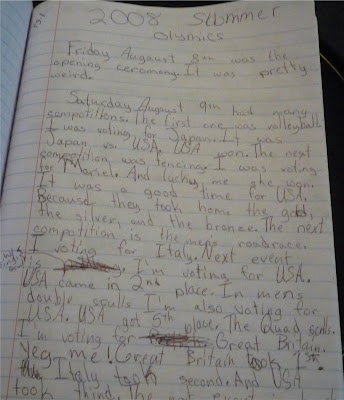 2008 Summer
Olymics
Friday Augast 8th was the
opening ceramony. It was pretty
weird.
Saturday August 9th had many
compotitions. The first one was volleyball
I was voting for Japan. It was
Japan vs. USA. USA won. The next
compotition was fencing. I was voting
for Mariel. And lucky me she won.
It was a good time for USA.
Because they took home the gold,
the silver, and the bronze. The next
competition is the mens roadrace.
I voting for Italy. Next event
is I'm voting for USA.
USA came in 2nd place. In mens
double sculls I'm also voting for
USA. USA got 5th place. The Quad sculls.
I'm voting for Great Britain.
Yeg me! Great Britain took 1st.
Italy took second. And USA
took third. The next event is